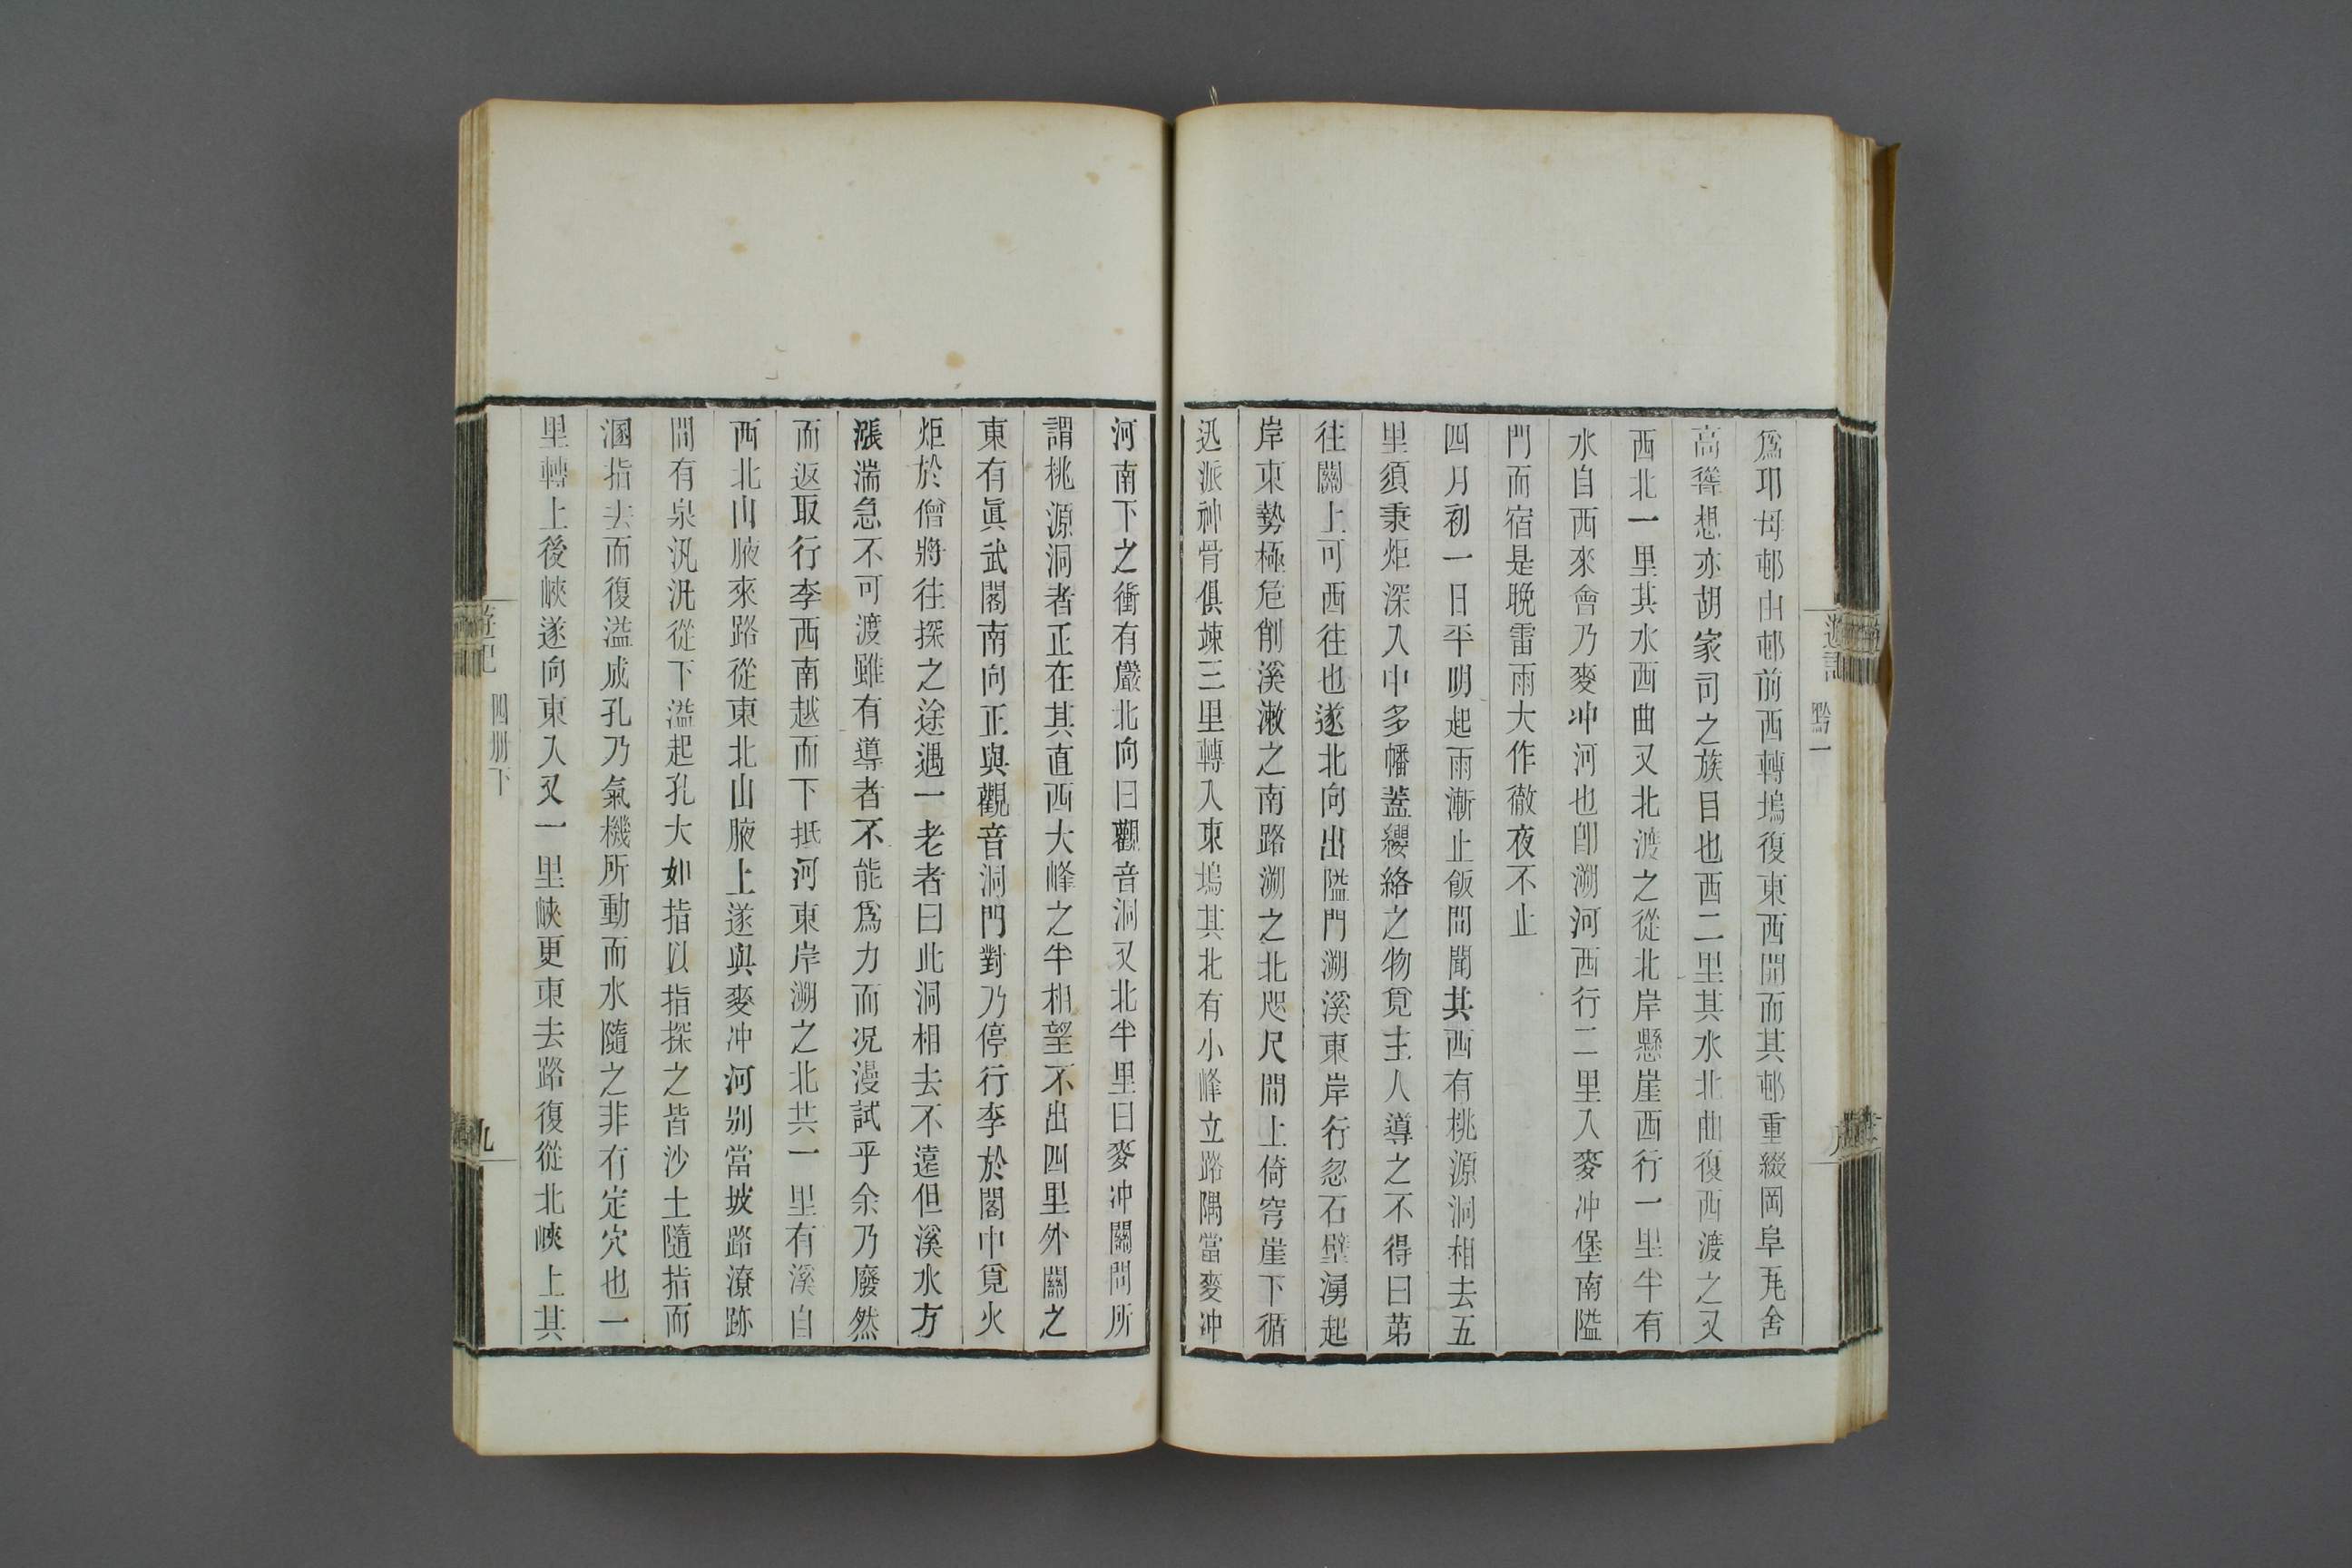 遊記
黔一
爲耶母邨由邨前西轉塢復東西開而其邨重綴岡阜瓦舍
高聳想亦胡家司之族目也西二里其水北曲復西渡之又
西北一里其水西曲又北渡之從北岸懸崖西行一里半有
水自西來會乃麥冲河也卽溯河西行二里入麥冲堡南隘
門而宿是晚雷雨大作徹夜不止
四月初一日平明起雨漸止飯間聞其西有桃源洞相去五
里須秉炬深入中多幡蓋纓絡之物覓主人導之不得曰苐
往關上可西往也遂北向出隘門溯溪東岸行忽石壁湧起
岸束勢極危削溪漱之南路溯之北咫尺間上倚穹崖下循
迅派神骨俱竦三里轉入東塢其北有小峰立路隅當麥冲
河南下之衝有巖北向曰觀音洞又北半里曰麥冲關問所
謂桃源洞者正在其直西大峰之半相望不出四里外關之
東有眞武閣南向正與觀音洞門對乃停行李於閣中覓火
炬於僧將往探之途遇一老者曰此洞相去不遠但溪水方
漲湍急不可渡雖有導者不能爲力而况漫試乎余乃廢然
而返取行李西南越而下抵河東岸溯之北共一里有溪自
西北山腋來路從東北山腋上遂與麥冲河别當坡路潦跡
間有泉汎汎從下溢起孔大如指以指探之皆沙土隨指而
溷指去而復溢成孔乃氣機所動而水隨之非有定穴也一
里轉上後峽遂向東入又一里峽更東去路復從北峽上其
遊記
四册下
九